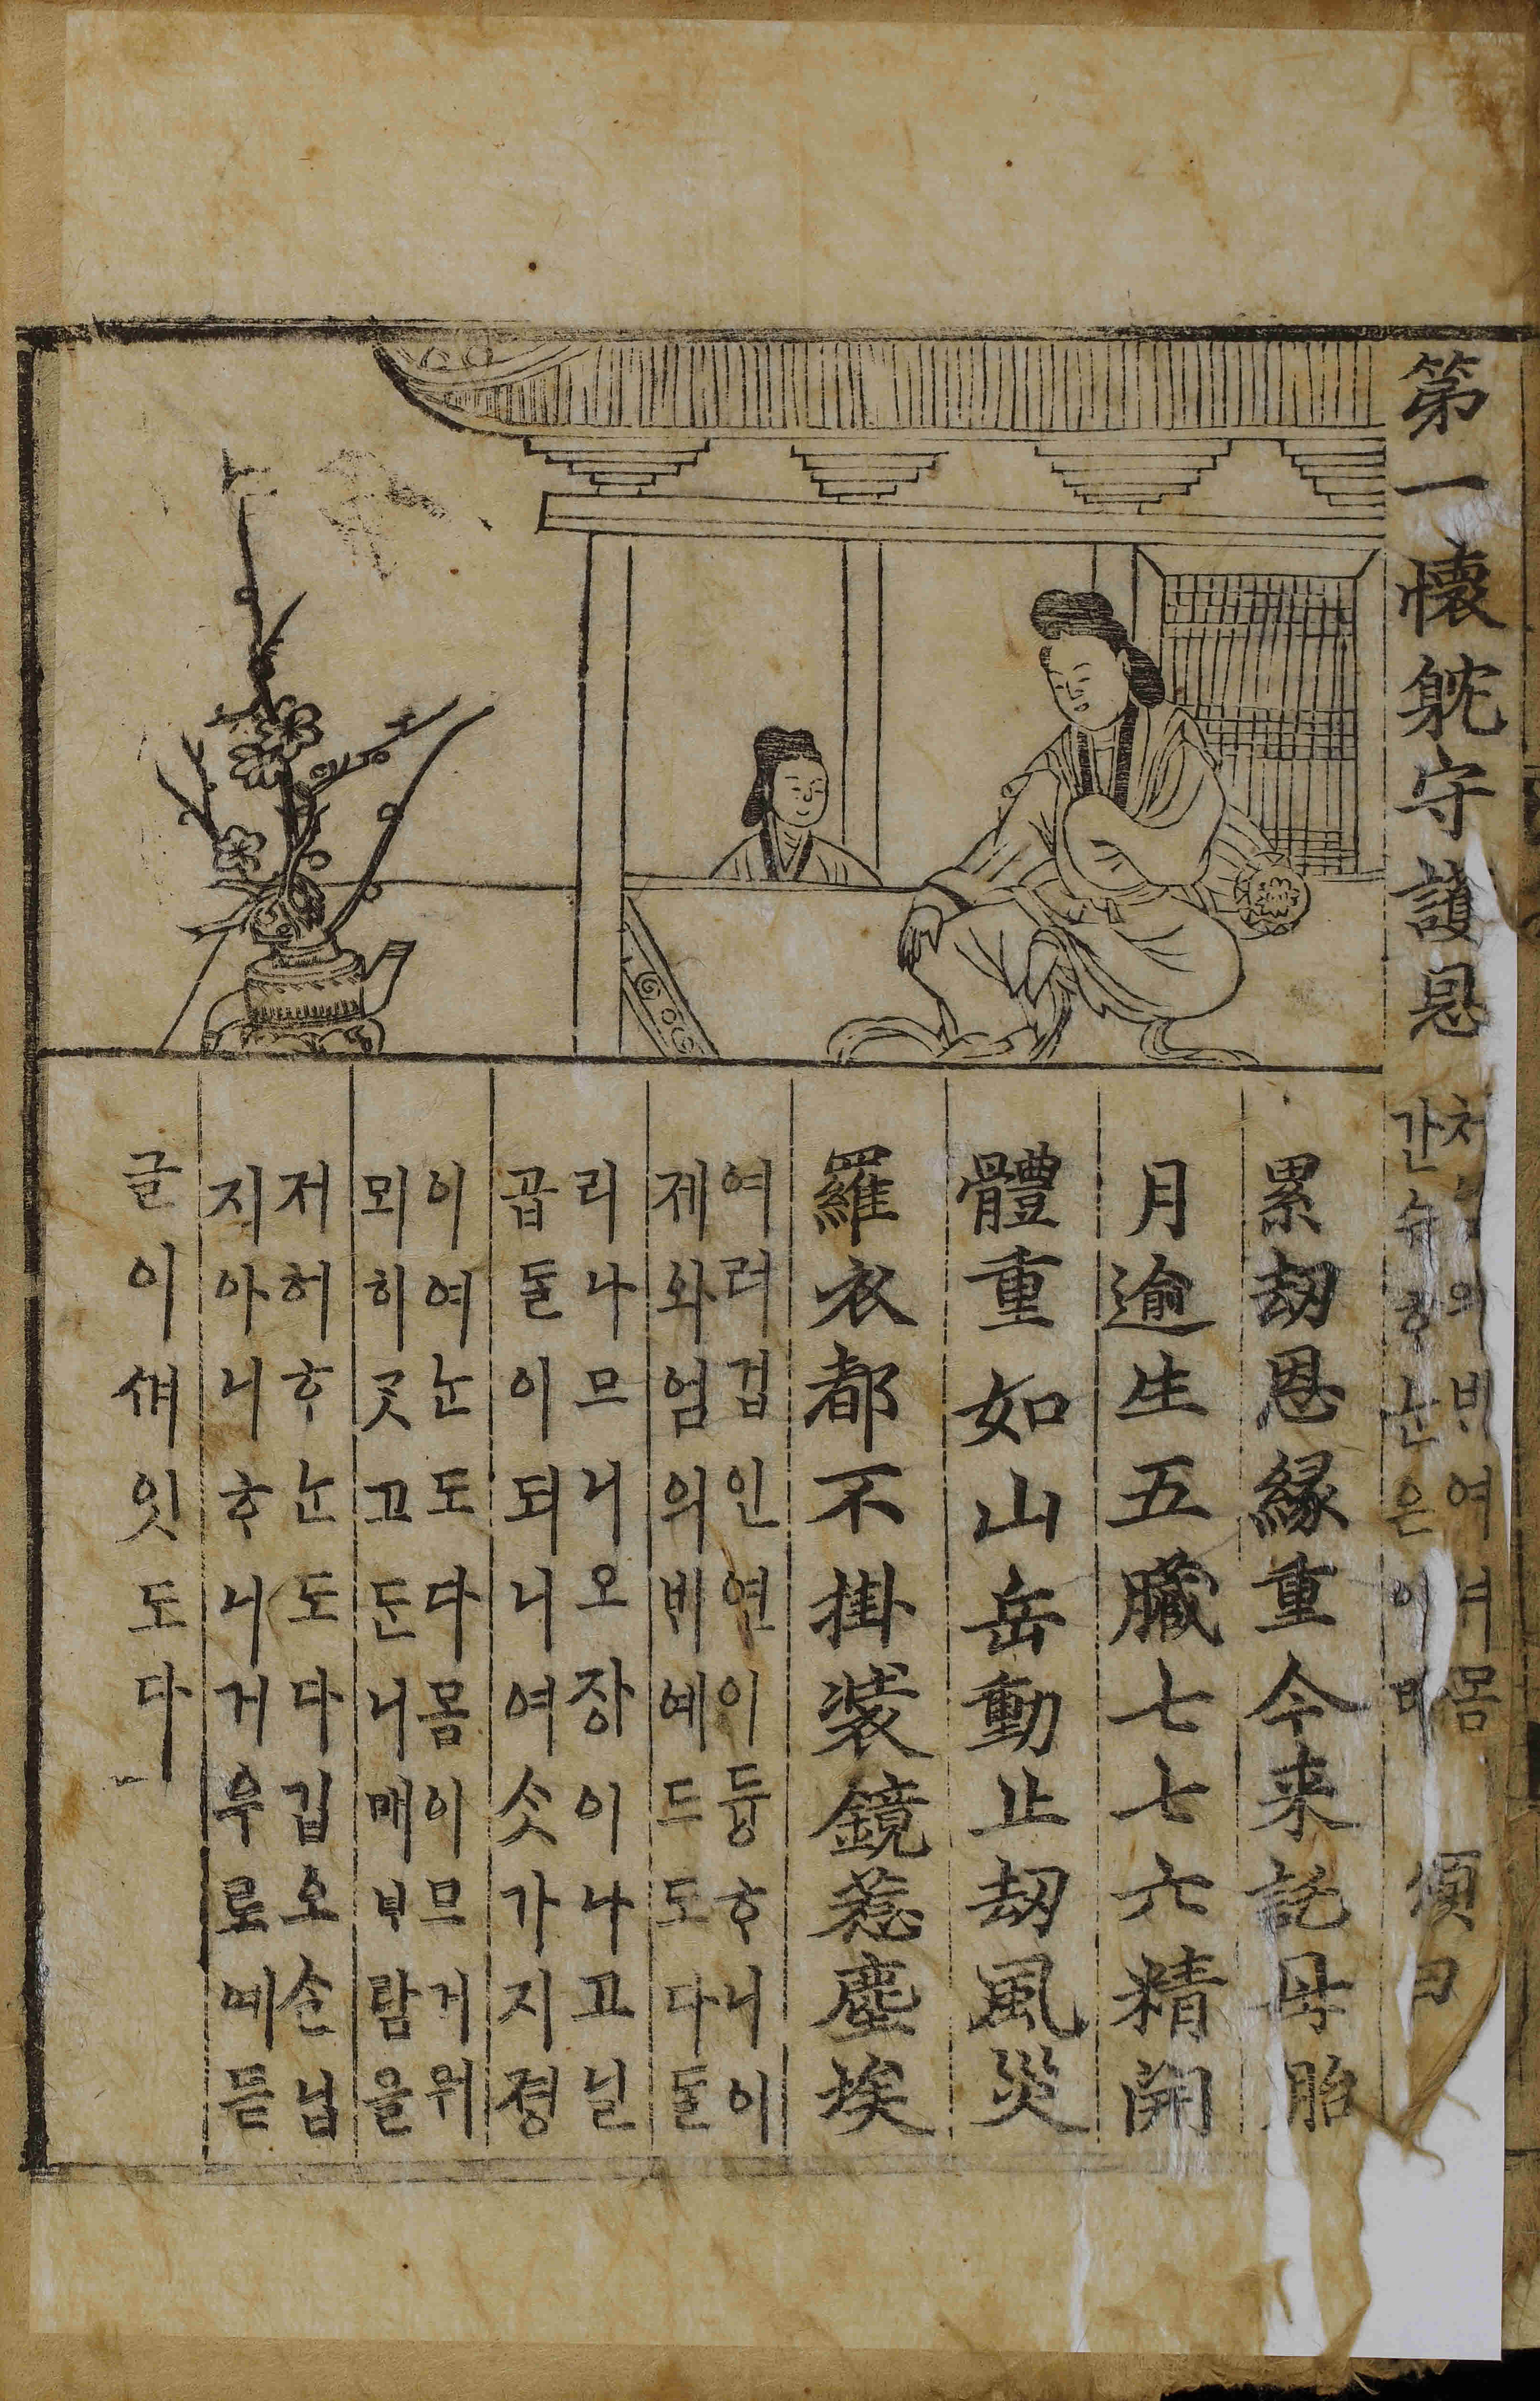 第一懷躭守護恩
의ᄇᆡ여녀몸
간슈ᄒᆞ논은이
頌曰
累劫恩緣重今来託母胎
月逾生五臓七七六精開
體重如山岳動止刼風災
羅衣都不掛裝鏡惹塵埃
여려겁인연이듕ᄒᆞ니이
제와엄의ᄇᆡ예드도다ᄃᆞᆯ
리나므니오장이나고닐
곱ᄃᆞᆯ이되니여슷가지졍
이여눈도다몸이므거워
뫼히ᄀᆞᆺ고ᄃᆞᆫ니매ᄇᆞ람을
저허ᄒᆞ눈도다깁오ᄉᆞᆫ닙
지아니ᄒᆞ니거우로예듣
글이잇도다